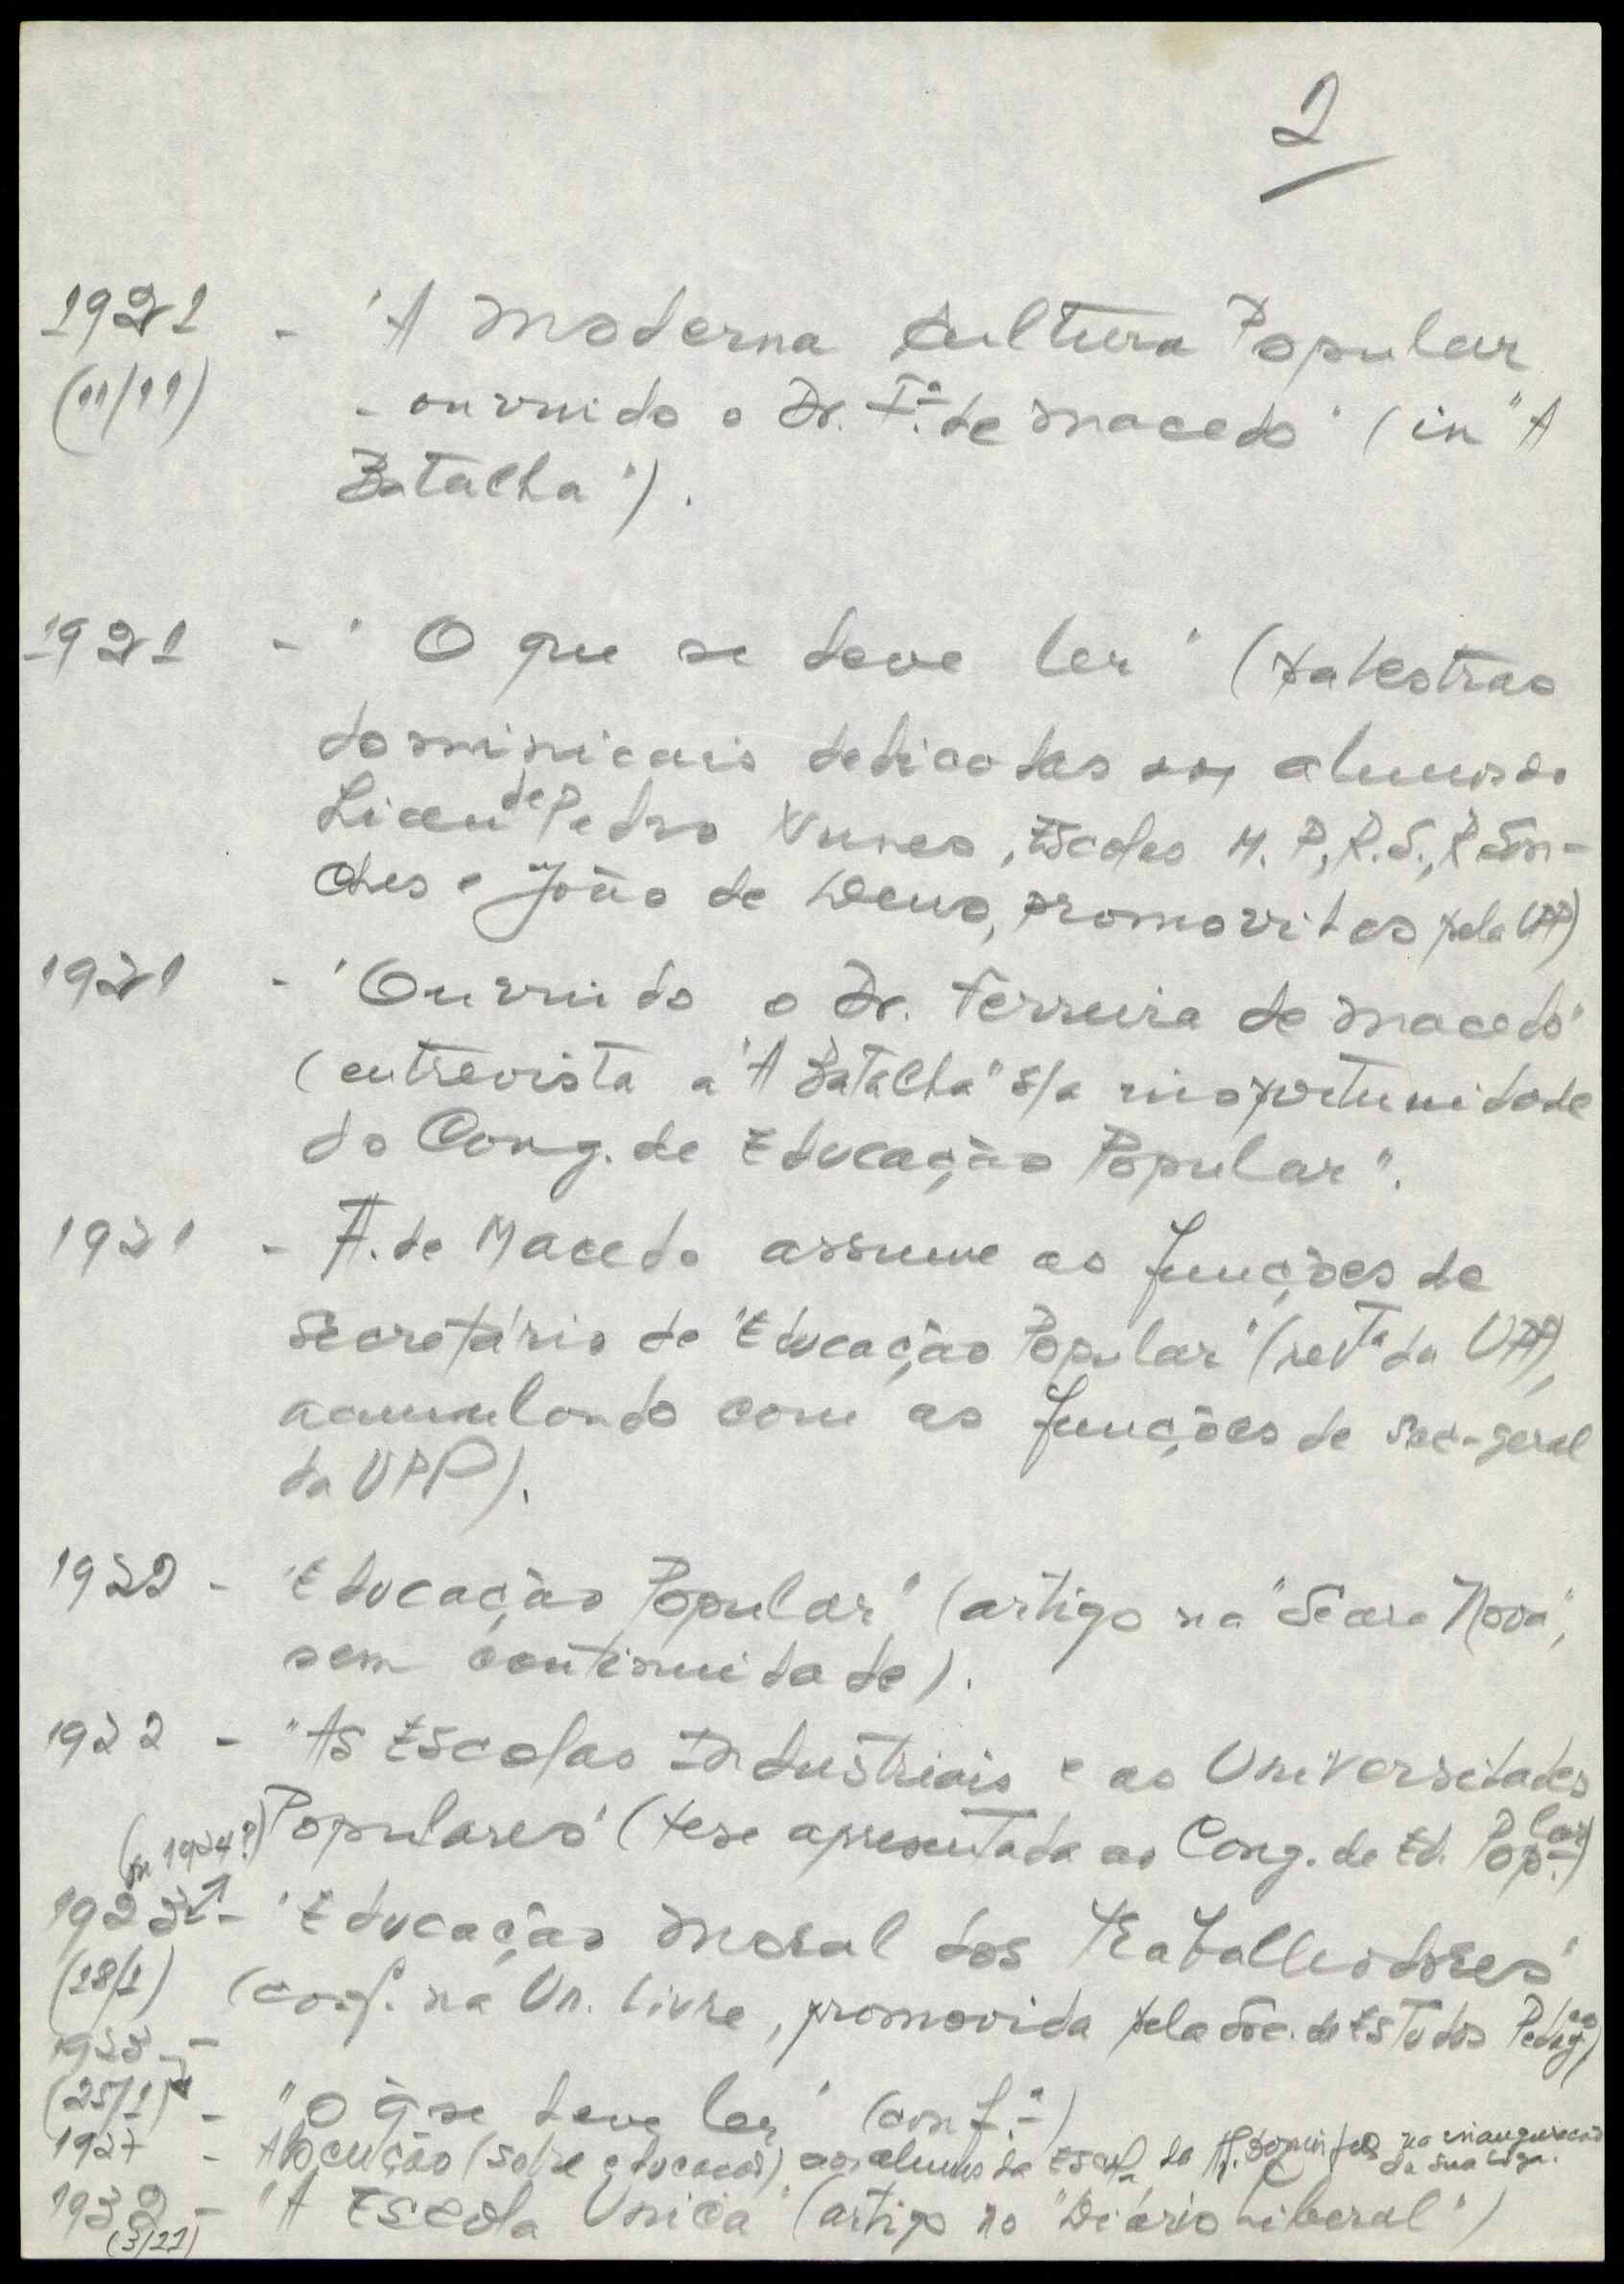 2
1921 - "A Moderna Cultura Popular
(11/11) - ouvindo o Dr. Fª. de Macedo" (in "A
Batalha").
1921 - "O que se deve ler" (palestras
dominicais dedicadas aos alunos do
Liceu de Pedro Nunes, Escolas M. P., R. S., R. Sén-
ches e João de Deus, promovidas pela UPP)
1921 - "Ouvindo o Dr. Ferreira de Macedo"
(entrevista a "A Batalha" s/a inoportunidade
do Cong. de Educação Popular".
1921 - F. de Macedo assume as funções de
Secretário de "Educação Popular" (revta da UPP),
acumulando com as funções de sec-geral
da UPP).
1922 - "Educação Popular" (artigo na "Seara Nova",
sem continuidade).
1922 - "As Escolas Industriais e as Universidades
Populares" (tese apresentada ao Cong. de Ed. Poplar.)
(ou 1924?)
1923 - "Educação Moral dos Trabalhadores"
(18/1) (conf. na Un. Livre, promovida pela Soc. de Estudos Pedagcos)
1923 -
(25/1) - "O q se deve ler" (conf.ª)
1927 - Alocução (sobre educação) aos alunos da Escola de Af. Domingues na inauguração
da sua Liga.
1932 - "A Escola Única" (artigo no "Diário Liberal")
(3/11)